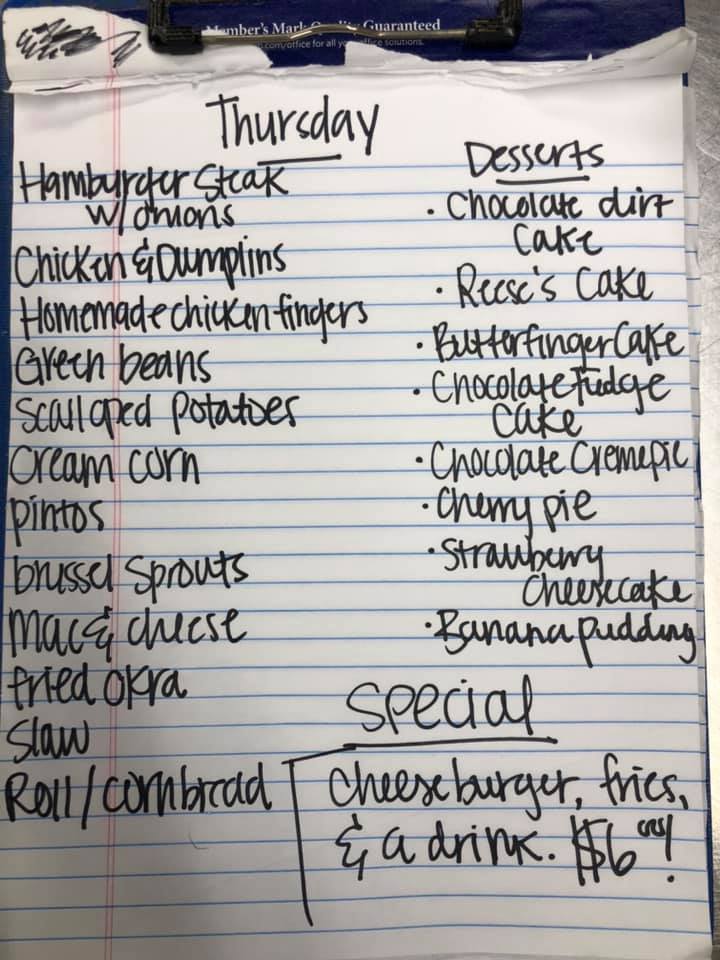 Member's Mark Quality Guaranteed
.com/office for all your office solutions.
Thursday
Hamburger Steak
w/onions
Chicken & Dumplins
Homemade chicken fingers
Green beans
Scalloped Potatoes
Cream corn
pintos
brussel Sprouts
Mac & cheese
fried okra
Slaw
Roll/cornbread
Desserts
• Chocolate dirt
Cake
• Reese's Cake
• Butterfinger Cake
• Chocolate Fudge
Cake
• Chocolate Creme pie
• Cherry pie
• Strawberry
Cheesecake
• Banana pudding
Special
Cheeseburger, fries,
& a drink. $6.00!